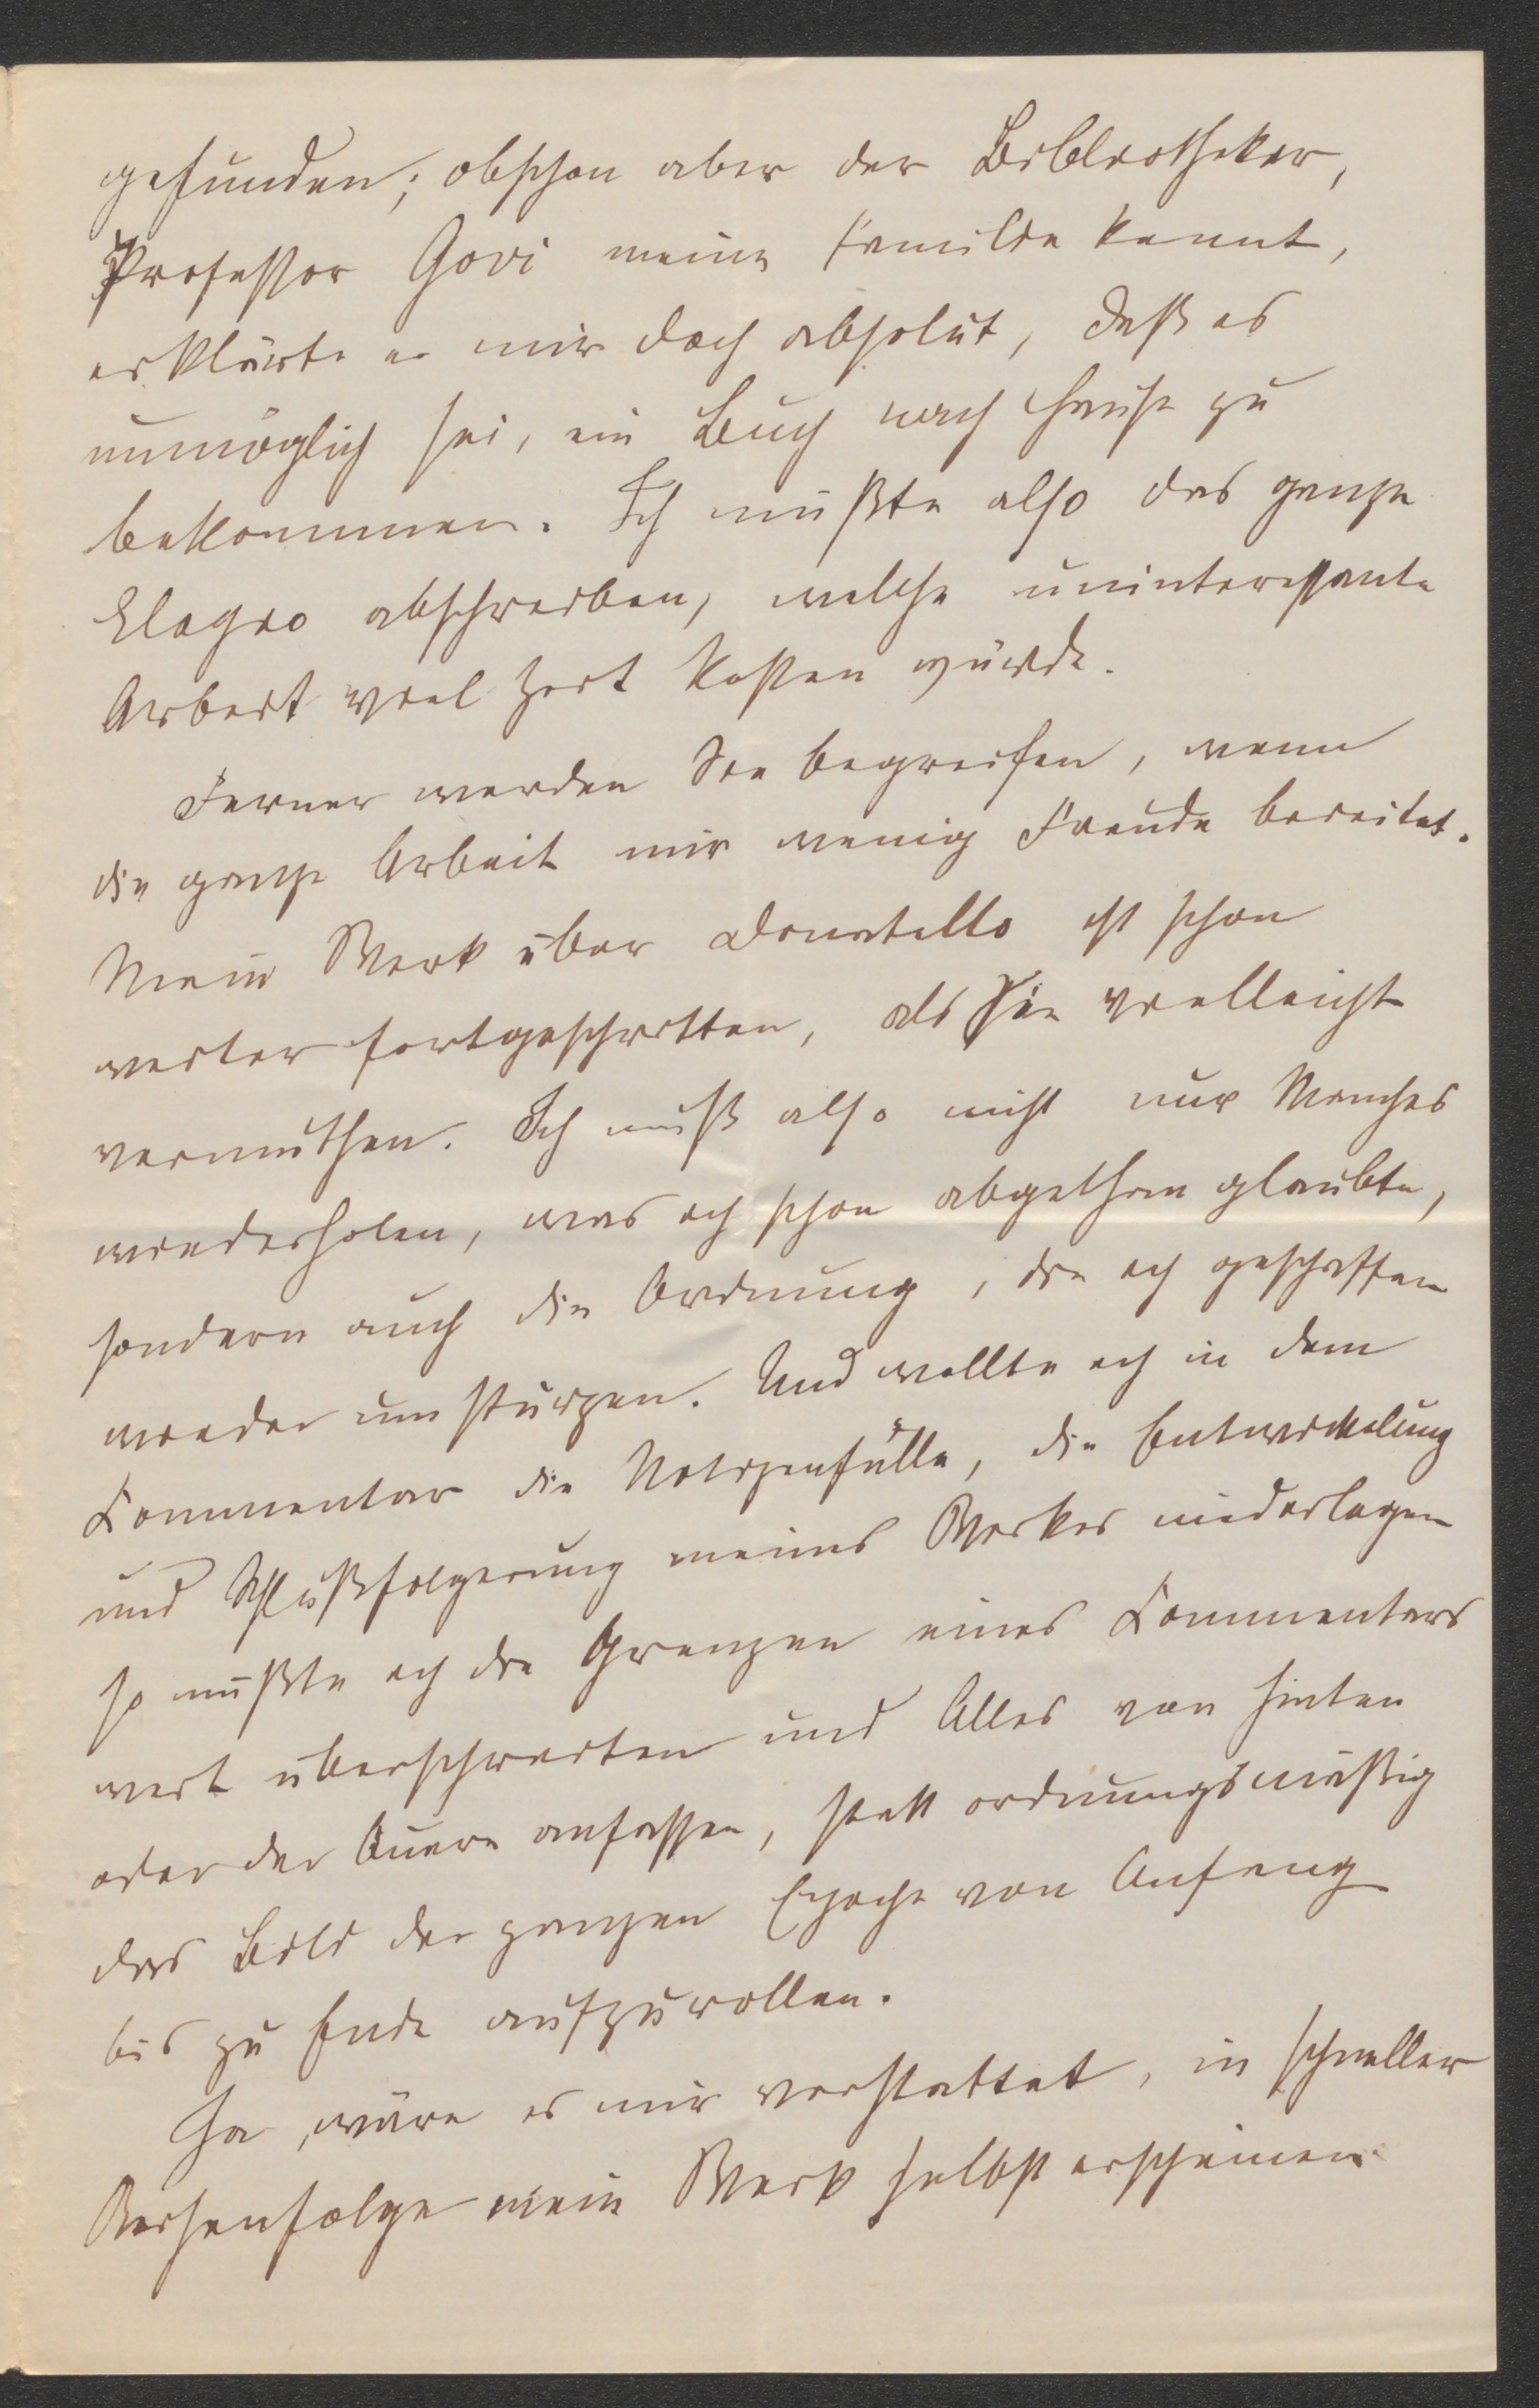 gefunden; obschon aber der Bibliothekar,
Professor Govi meine Familie kennt,
erklärte er mir doch absolut, daß es
unmöglich sei, ein Buch nach Hause zu
bekommen. Ich müßte also das ganze
Elogio abschreiben, welche uninteressante
Arbeit viel Zeit kosten würde.
Ferner werden Sie begreifen, wenn
die ganze Arbeit mir wenig Freude bereitet.
Mein Werk über Donatello ist schon
weiter fortgeschritten, als Sie vielleicht
vermuthen. Ich muß also nicht nur Manches
wiederholen, was ich schon abgethan glaubte,
sondern auch die Ordnung, die ich geschaffen
wieder umstürzen. Und wollte ich in dem
Commentar die Notizenfülle, die Entwickelung
und Schlußfolgerung meines Werkes niederlegen
so müßte ich die Grenzen eines Commentars
weit überschreiten und Alles von hinten
oder der Quere anfassen, statt ordnungsmäßig
das Bild der ganzen Epoche von Anfang
bis zu Ende aufzurollen.
Ja, wäre es mir verstattet, in schneller
Reihenfolge mein Werk selbst erscheinen